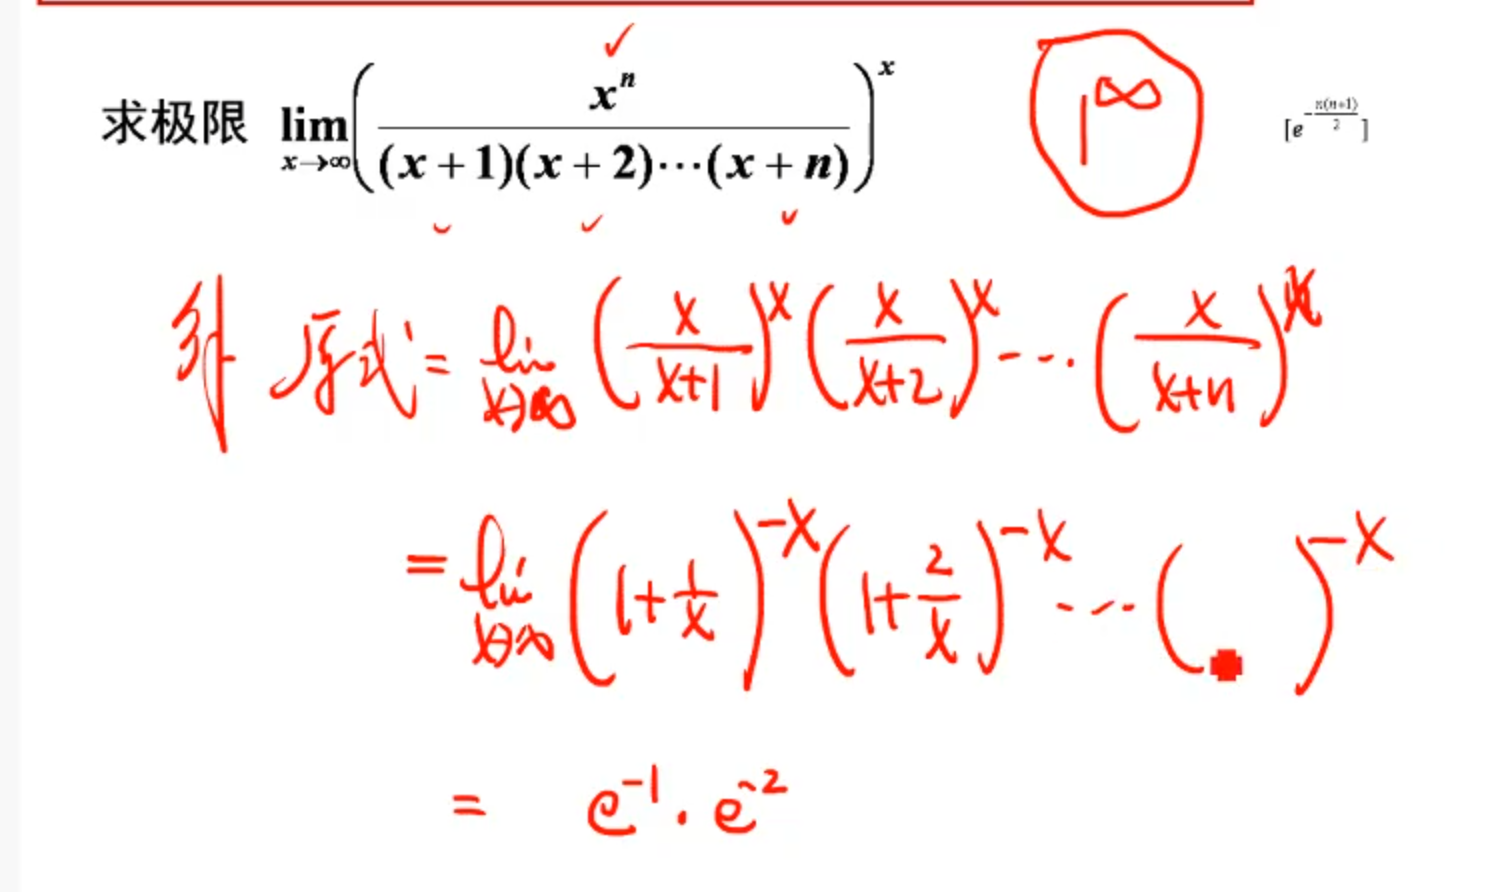 求极限 lim x→∞ (x^n / (x+1)(x+2)⋯(x+n))^x 1^∞ [e^{-n(n+1)/2}]
解 原式 = lim x→∞ (x/(x+1))^x (x/(x+2))^x ⋯ (x/(x+n))^x
= lim x→∞ (1+1/x)^{-x} (1+2/x)^{-x} ⋯ ( )^{-x}
= e^{-1} · e^{-2}